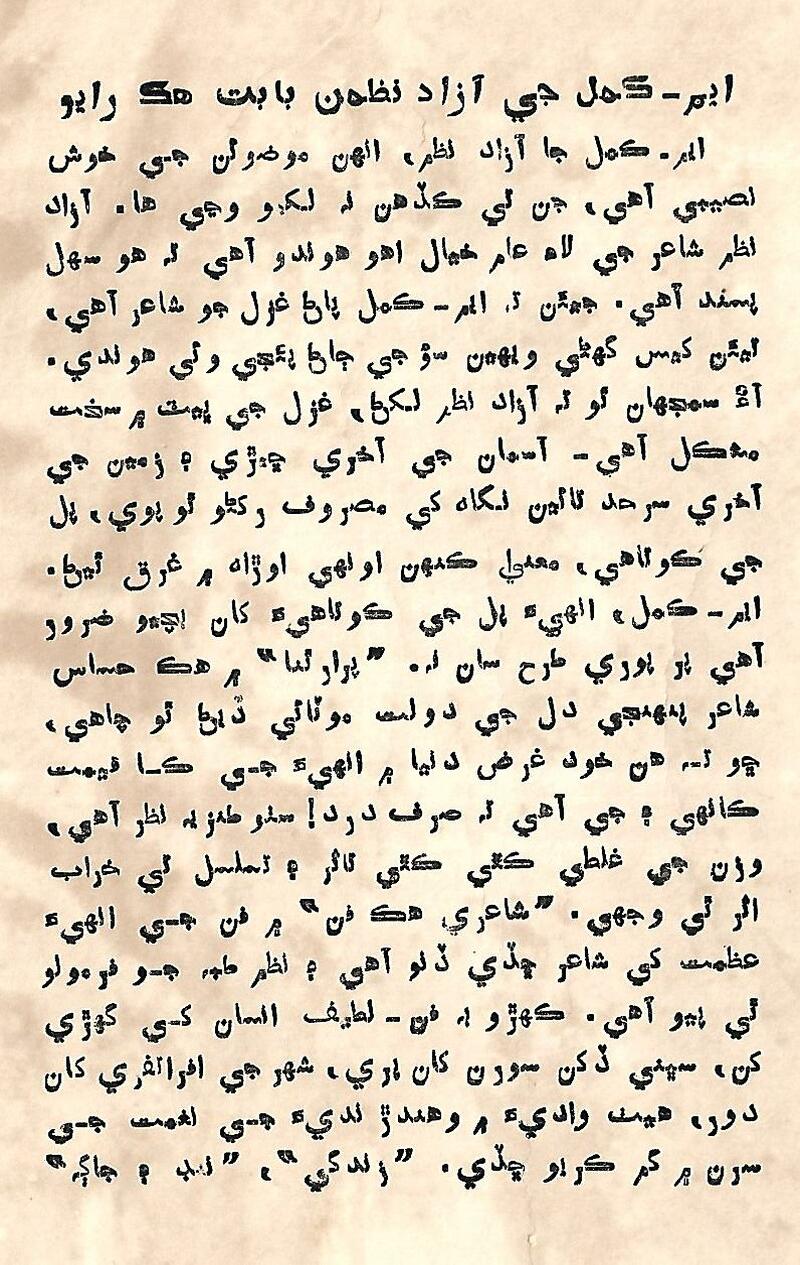 ايم - ڪمل جي آزاد نظمن بابت هڪ رايو
ايم. ڪمل جا آزاد نظم، انهن موضوئن جي خوش
نصيبي آهي، جن تي ڪڏهن نہ لکبو وڃي ها. آزاد
نظم شاعر جي لاءِ عام خيال اهو هوندو آهي تہ هو سهل
پسند آهي. جيئن تہ ايم - ڪمل پاڻ غزل جو شاعر آهي،
تيئن کيس گهڻي ويهين سؤ جي ڄاڻ پئجي وئي هوندي.
آءٌ سمجهان ٿو تہ آزاد نظم لکڻ، غزل جي ڀيٽ ۾ سخت
مشڪل آهي - آسمان جي آخري ڇيڙي ۽ زمين جي
آخري سرحد تائين نگاه کي مصروف رکڻو ٿو پوي، پل
جي ڪوتاهي، معنيٰ ڪنهن اونهي اوڙاه ۾ غرق ٿيڻ.
ايم - ڪمل، انهيءَ پل جي ڪوتاهيءَ کان بچيو ضرور
آهي پر پوري طرح سان نہ. ”پرارٿنا“ ۾ هڪ حساس
شاعر پنهنجي دل جي دولت موٽائي ڏيڻ ٿو چاهي،
ڇو تہ هن خود غرض دنيا ۾ انهيءَ جي ڪا قيمت
ڪانهي ۽ جي آهي تہ صرف درد! سٺو طنزيہ نظم آهي،
وزن جي غلطي ڪٿي ڪٿي تاثر ۽ تسلسل تي خراب
اثر ٿي وجهي. ”شاعري هڪ فن“ ۾ فن جي انهيءَ
عظمت کي شاعر ڇڏي ڏنو آهي ۽ نظم طبہ جو فرمولو
ٿي پيو آهي. ڪهڙو بہ فن - لطيف انسان کي گهڙي
کن، سيني ڏکن سورن کان پري، شهر جي افراتفري کان
دور، هيٺ واديءَ ۾ وهندڙ نديءَ جي نغمت جي
سرن ۾ گم ڪريو ڇڏي. ”زندگي“، ”ننڊ ۽ جاڳہ“